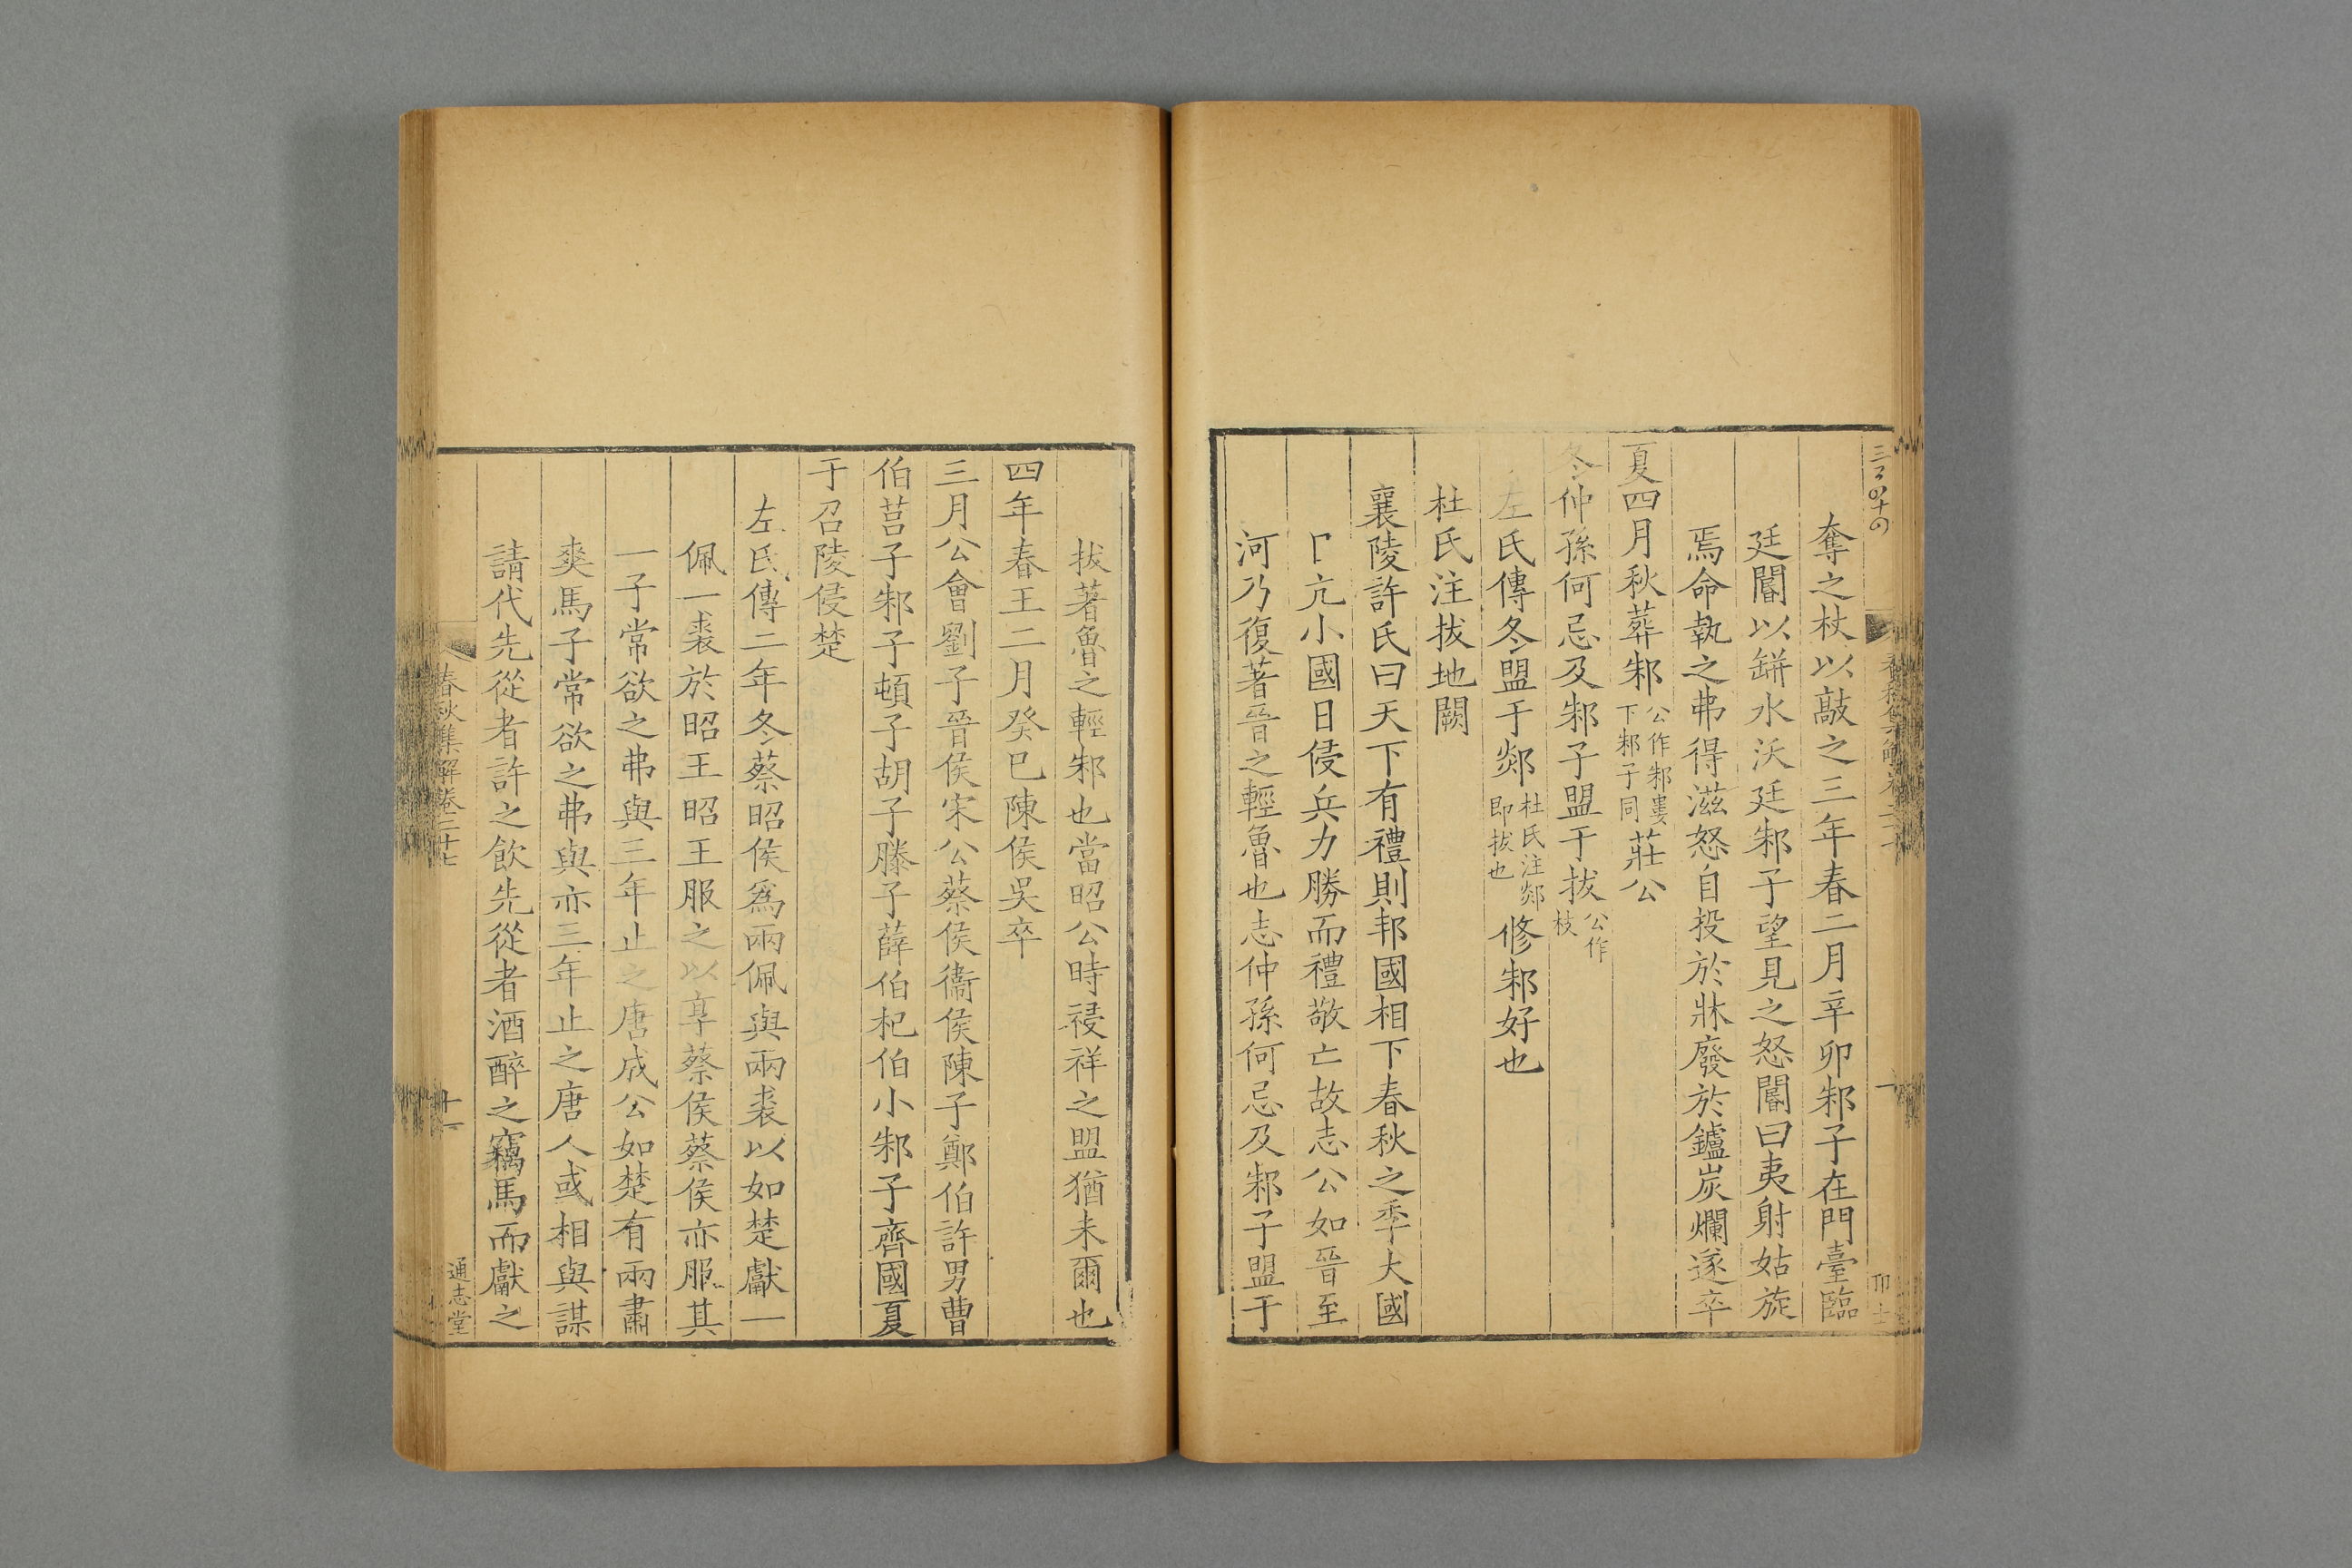 奪之杖以敲之三年春二月辛卯邾子在門臺臨
廷閽以缾水沃廷邾子望見之怒閽曰夷射姑旋
焉命執之弗得滋怒自投於牀廢於鑪炭爛遂卒
夏四月秋葬邾公作邾婁下邾子同莊公
冬仲孫何忌及邾子盟于拔公作枝
左氏傳冬盟于郯杜氏注郯即拔也修邾好也
杜氏注拔地闕
襄陵許氏曰天下有禮則邦國相下春秋之季大國
亢小國日侵兵力勝而禮敬亡故志公如晉至
河乃復著晉之輕魯也志仲孫何忌及邾子盟于
拔著魯之輕邾也當昭公時祲祥之盟猶未爾也
四年春王二月癸巳陳侯吳卒
三月公會劉子晉侯宋公蔡侯衞侯陳子鄭伯許男曹
伯莒子邾子頓子胡子滕子薛伯杞伯小邾子齊國夏
于召陵侵楚
左氏傳二年冬蔡昭侯爲兩佩與兩裘以如楚獻一
佩一裘於昭王昭王服之以享蔡侯蔡侯亦服其
一子常欲之弗與三年止之唐成公如楚有兩肅
爽馬子常欲之弗與亦三年止之唐人或相與謀
請代先從者許之飲先從者酒醉之竊馬而獻之
春秋集解卷二十七
十一
通志堂